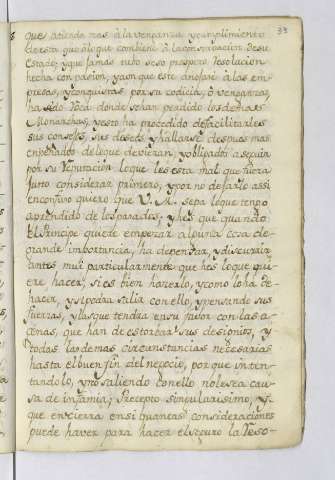 33
que atienda mas à la vengança y cumplimiento
de esta que à lo que combiene à la conservacion de su
Estado; y que jamas tubo suceso prospero resolucion
hecha con pasion, ya son que este ansiare à las em-
presas, y conquistas por su codicia, ò venganzas,
ha sido roca donde se han perdido los demas
Monarchas, y esto ha procedido de facilitarles
sus consejos, sus deseos y hallarse despues mas
empeñados de lo que devieran, y obligados a seguir
por su reputacion lo que les esta mal que fuera
justo considerar primero, y por no dejarlo assi
en confuso quiero que V. M. sepa lo que tengo
aprendido de los pasados, y hes que quando
El Principe quiere empezar alguna cosa de
grande importancia, ha de pensar, y discurrir
antes mui particularmente que hes lo que qui-
ere hacer, si es bien hazerlo, y como lo ha de
hacer, y si podra salir con ello, y pensando sus
fuerzas, y las que tendra en su favor con las a-
genas, que han de estorbar sus designios, y
todas las demas circunstancias necesarias
hasta el buen fin del negocio, por que inten-
tandolo, y no saliendo con ello no le sea cau-
sa de infamia; Precepto singularissimo, y
que encierra en si quantas consideraciones
puede haver para hacer el seguro la reso-